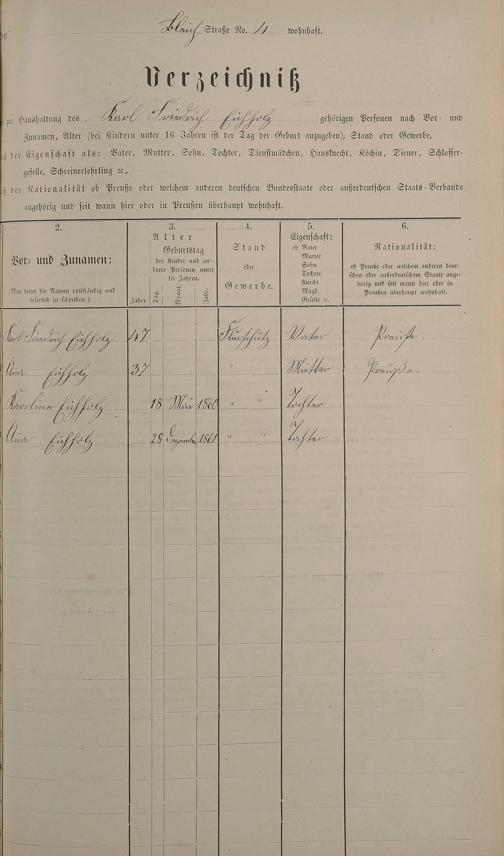 Bleich Straße No. 4 wohnhaft.
Verzeichniß
zur Haushaltung des Karl Friedrich Eichholz gehörigen Personen nach Vor- und
Zunamen, Alter (bei Kindern unter 16 Jahren ist der Tag der Geburt anzugeben), Stand oder Gewerbe,
der Eigenschaft als: Vater, Mutter, Sohn, Tochter, Dienstmädchen, Hausknecht, Köchin, Diener, Schlosser-
geselle, Schreinerlehrling ꝛc.,
der Nationalität ob Preuße oder welchem anderen deutschen Bundesstaate oder außerdeutschen Staats-Verbande
angehörig und seit wann hier oder in Preußen überhaupt wohnhaft.
2. 3. 4. 5. 6.
Vor- und Zunamen:
(Man bittet die Namen vollständig und
leserlich zu schreiben.)
Alter
Geburtstag
der Kinder und an-
derer Personen unter
16 Jahren.
Jahre Tag. Monat. Jahr.
Stand
oder
Gewerbe.
Eigenschaft:
ob Vater
Mutter
Sohn
Tochter
Knecht
Magd
Geselle ꝛc.
Nationalität:
ob Preuße oder welchem anderen deut-
schen oder außerdeutschen Staate ange-
hörig und seit wann hier oder in
Preußen überhaupt wohnhaft.
Karl Friedrich Eichholz 47 Vater Preuße.
Ana Eichholz 37 " Mutter Preuße.
Karoline Eichholz 18 Mai 1860 " " Tochter
Ana Eichholz 28 Dezember 1861 " " Tochter